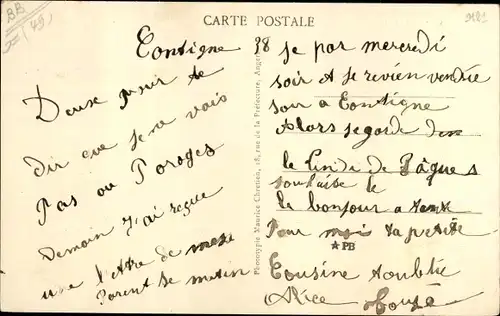 BB
(49)
CARTE POSTALE
Contigne 98
Deux pour te
dir que je ne vais
Pas au Poroges
Demain J'ai reçue
une lettre de mese
Parent se matin
Phototypie Maurice Chretien, 18, rue de la Préfecture, Angers
je par mercredi
soir et je revien vendre
soir a Contigne
Alors je garde
le lindi de Pâques
souhaite le
le bonjour a
Pour moi ta petite
★PB
Cousine
Alice